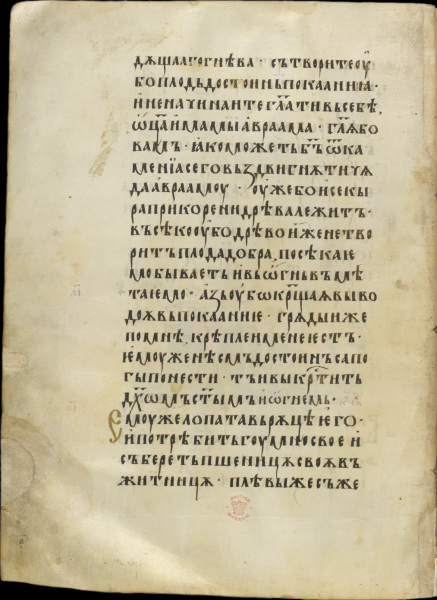 дѧщааго гнѣва · сътворите оу
бо плодь достоинь покаанїа ·
и не начинаите гл҃ати въ себѣ
ѿца имамы авраама · гл҃ѧ бо
вамъ · ꙗко можетъ б҃ъ ѿ ка
менїа сего въздвигнѫти чѧ
да авраамоу · оуже бо и секы
ра при корени дрѣва лежитъ ·
въсѣко оубо дрѣво иже не тво
ритъ плода добра, посѣкаѥ
мо бываетъ и въ ѡгнь въмѣ
таѥмо · азъ оубѡ кр҃щаѧ вы во
доѫ въ покаание · грѧдыи же
по мнѣ крѣплеи мене естъ ·
ѥмоуже нѣсмъ достоинъ сапо
гы понести · тъи вы кр҃тить
дх҃ѡмъ ст҃ымъ и ѡгнемь ·
Емоуже лопата въ рѫцѣ ѥго ·
и потрѣбитъ гоумно свое и
съберетъ пшеницѫ своѫ въ
житницѫ · плѣвы же съже
BRITISH MUSEUM